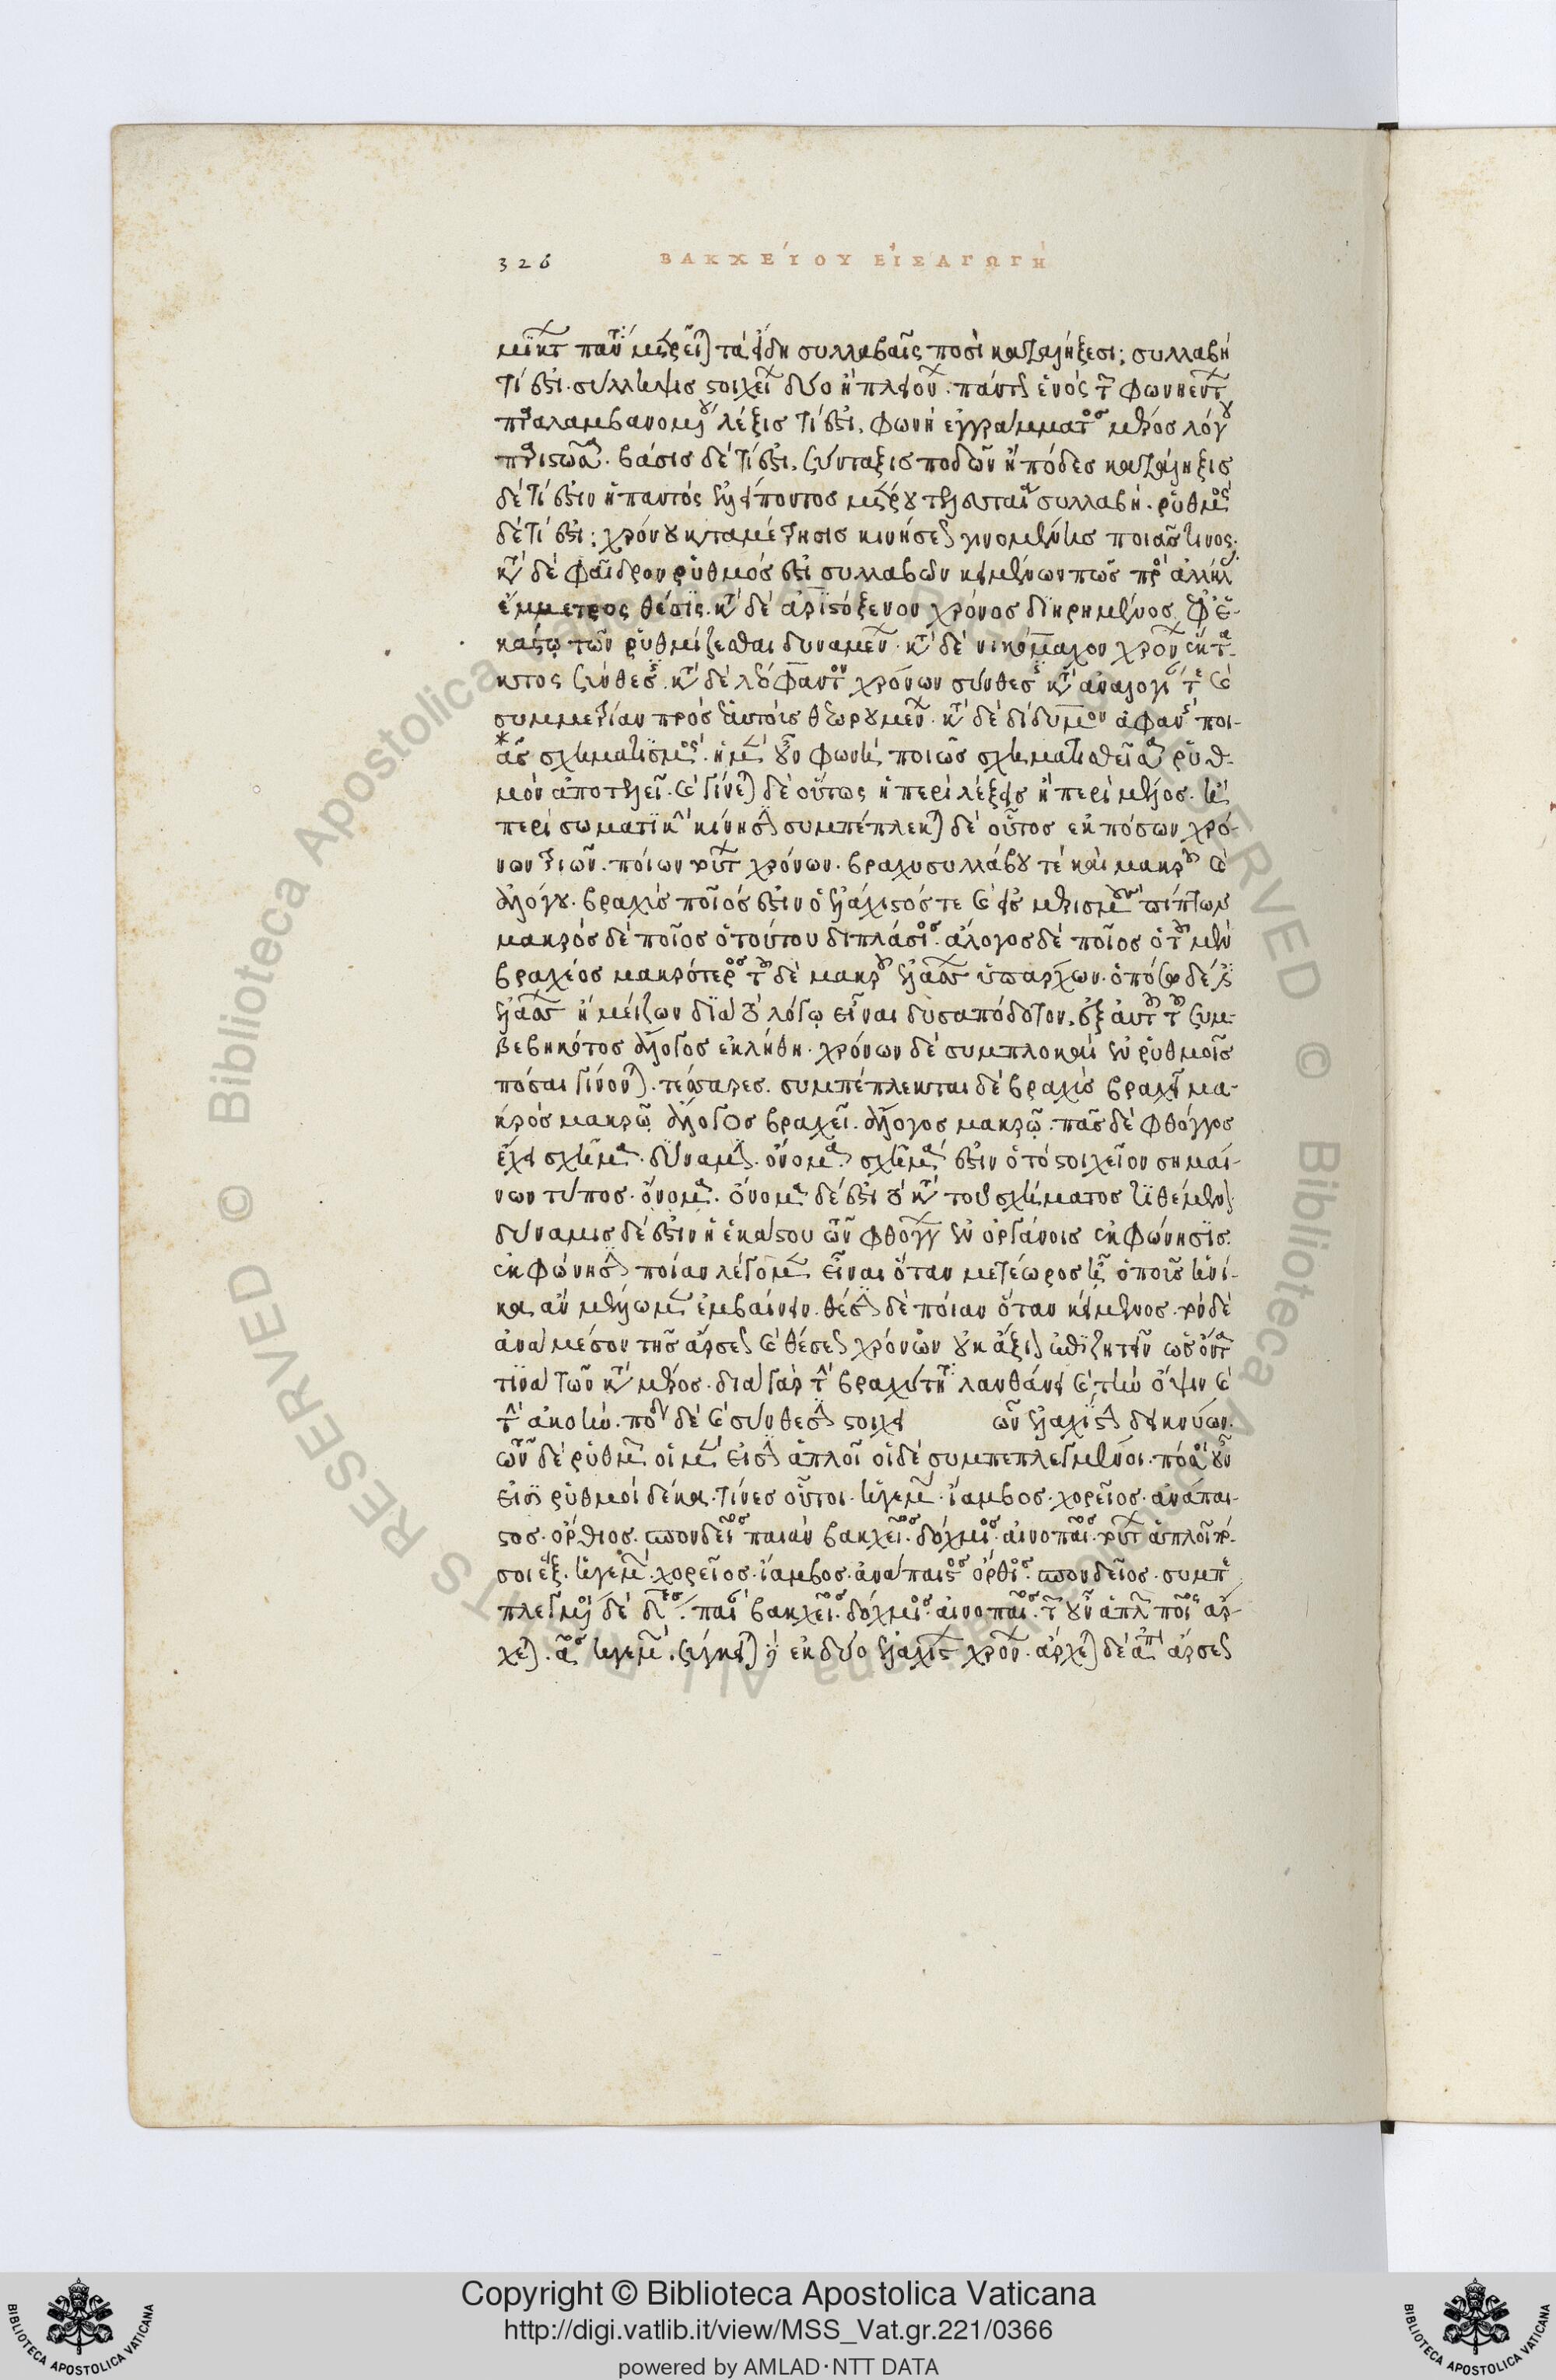 326 ΒΑΚΧΕΊΟΥ ΕἸΣΑΓΩΓΉ
τὰ εἴδη συλλαβαῖς ποσὶ καταλήξεσι; συλλαβὴ
τί ἐστι. σύλληψις στοιχείων δύο ἢ πλειόνων. πάντως ἑνὸς τῶν φωνηέντων
παραλαμβανομένου λέξις τί ἐστι. φωνὴ ἐγγράμματος μέρος λόγου
βάσις δὲ τί ἐστι. σύνταξις ποδῶν ἢ πόδες κατάληξις
δὲ τί ἐστιν ἡ παντὸς μέτρου τελευταία συλλαβή. ῥυθμὸς
δὲ τί ἐστι; χρόνου καταμέτρησις κινήσεως γινομένης ποιᾶς τινος.
κατὰ δὲ φαῖδρον ῥυθμός ἐστι συλλαβῶν κειμένων πως πρὸς ἀλλήλας
ἔμμετρος θέσις. κατὰ δὲ ἀριστόξενον χρόνος διῃρημένος ἐφ' ἑ-
κάστῳ τῶν ῥυθμίζεσθαι δυναμένων. κατὰ δὲ νικόμαχον χρόνων εὔτα-
κτος σύνθεσις. κατὰ δὲ λεόφαντον χρόνων σύνθεσις κατὰ ἀναλογίαν τε καὶ
συμμετρίαν πρὸς ἑαυτοὺς θεωρουμένων. κατὰ δὲ δίδυμον ποι-
ᾶς σχηματισμός. ἡ μὲν οὖν φωνὴ ποιῶς σχηματισθεῖσα ῥυθ-
μὸν ἀποτελεῖ. καὶ γίνεται δὲ οὗτος ἢ περὶ λέξεις ἢ περὶ μέλος. ἢ
περὶ σωματικὴν κίνησιν συμπέπλεκται δὲ οὗτος ἐκ πόσων χρό-
νων τριῶν. ποίων τούτων χρόνων. βραχυσυλλάβου τὲ καὶ μακροῦ καὶ
ἀλόγου. βραχὺς ποῖός ἐστιν ὁ ἐλάχιστός τε καὶ εἰς μερισμὸν πίπτων
μακρὸς δὲ ποῖος ὁ τούτου διπλάσιος. ἄλογος δὲ ποῖος ὁ τοῦ μὲν
βραχέος μακρότερος τοῦ δὲ μακροῦ ἐλάσσων ὑπάρχων. ὁπόσῳ δέ ἐστιν
ἐλάσσων ἢ μείζων διὰ τὸ λόγῳ εἶναι δυσαπόδοτον. ἐξ αὐτοῦ τοῦ συμ-
βεβηκότος ἄλογος ἐκλήθη. χρόνων δὲ συμπλοκαὶ ἐν ῥυθμοῖς
πόσαι γίνονται. τέσσαρες. συμπέπλεκται δὲ βραχὺς βραχεῖ μα-
κρὸς μακρῷ ἄλογος βραχεῖ. ἄλογος μακρῷ. πᾶς δὲ φθόγγος
ἔχει σχῆμα. δύναμιν. ὄνομα. σχῆμα ἐστιν ὁ τὸ στοιχεῖον σημαί-
νων τύπος. ὄνομα. ὄνομα δέ ἐστι τὸ κατὰ τοῦ σχήματος τιθέμενον
δύναμις δέ ἐστιν ἡ ἑκάστου τῶν φθόγγων ἐν ὀργάνοις ἐκφώνησις.
ποίαν λέγομεν εἶναι ὅταν μετέωρος ᾖ ὁ ποῦς ἡνί-
κα ἂν μέλλωμεν ἐμβαίνειν. θέσιν δὲ ποίαν ὅταν κείμενος. τὸν δὲ
ἀνὰ μέσον τῆς ἄρσεως καὶ θέσεως χρόνον οὐκ ἄξιον ἐπιζητεῖν ὡς ὄντα
τινὰ τῶν κατὰ μέρος. διὰ γὰρ τὴν βραχύτητα λανθάνει καὶ τὴν ὄψιν καὶ
τὴν ἀκοήν. δὲ καὶ σύνθεσιν στοιχεῖ τῶν ἐλαχίστων δεικνύων.
τῶν δὲ ῥυθμῶν οἱ μὲν εἰσὶν ἁπλοῖ οἱ δὲ συμπεπλεγμένοι. πόσοι οὖν
εἰσὶ ῥυθμοὶ δέκα. τίνες οὗτοι. ἡγεμών. ἴαμβος. χορεῖος. ἀνάπαι-
στος. ὄρθιος. σπονδεῖος παιὰν βακχεῖος. δόχμιος. ἐνόπλιος. τούτων ἁπλοῖ πό-
σοι ἕξ. ἡγεμών. χορεῖος. ἴαμβος. ἀνάπαιστος ὄρθιος. σπονδεῖος. συμπε
πλεγμένοι δὲ τέσσαρες. παιὰν βακχεῖος. δόχμιος. ἐνόπλιος. τῶν οὖν ἁπλῶν ποῖος ἄρ-
χει. ἡγεμών. σύγκειται ἐκ δύο ἐλαχίστων χρόνων. ἄρχεται δὲ ἀπὸ ἄρσεως
© Biblioteca Apostolica Vaticana ALL RIGHTS RESERVED
Copyright © Biblioteca Apostolica Vaticana
http://digi.vatlib.it/view/MSS_Vat.gr.221/0366
powered by AMLAD·NTT DATA
BIBLIOTECA APOSTOLICA VATICANA
BIBLIOTECA APOSTOLICA VATICANA